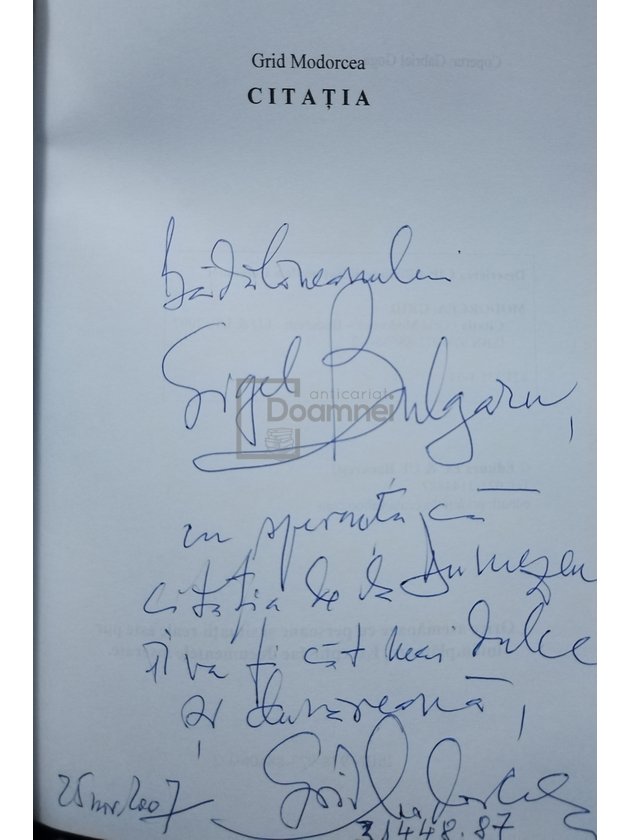 Grid Modorcea
CITAȚIA
Gigel Bulgaru,
cu speranța că
citația de la Dumnezeu
îi va fi cât mai dulce
și dunăreană,
Grid Modorcea
25 nov. 2007
31448.87
anticariat
Doamnei